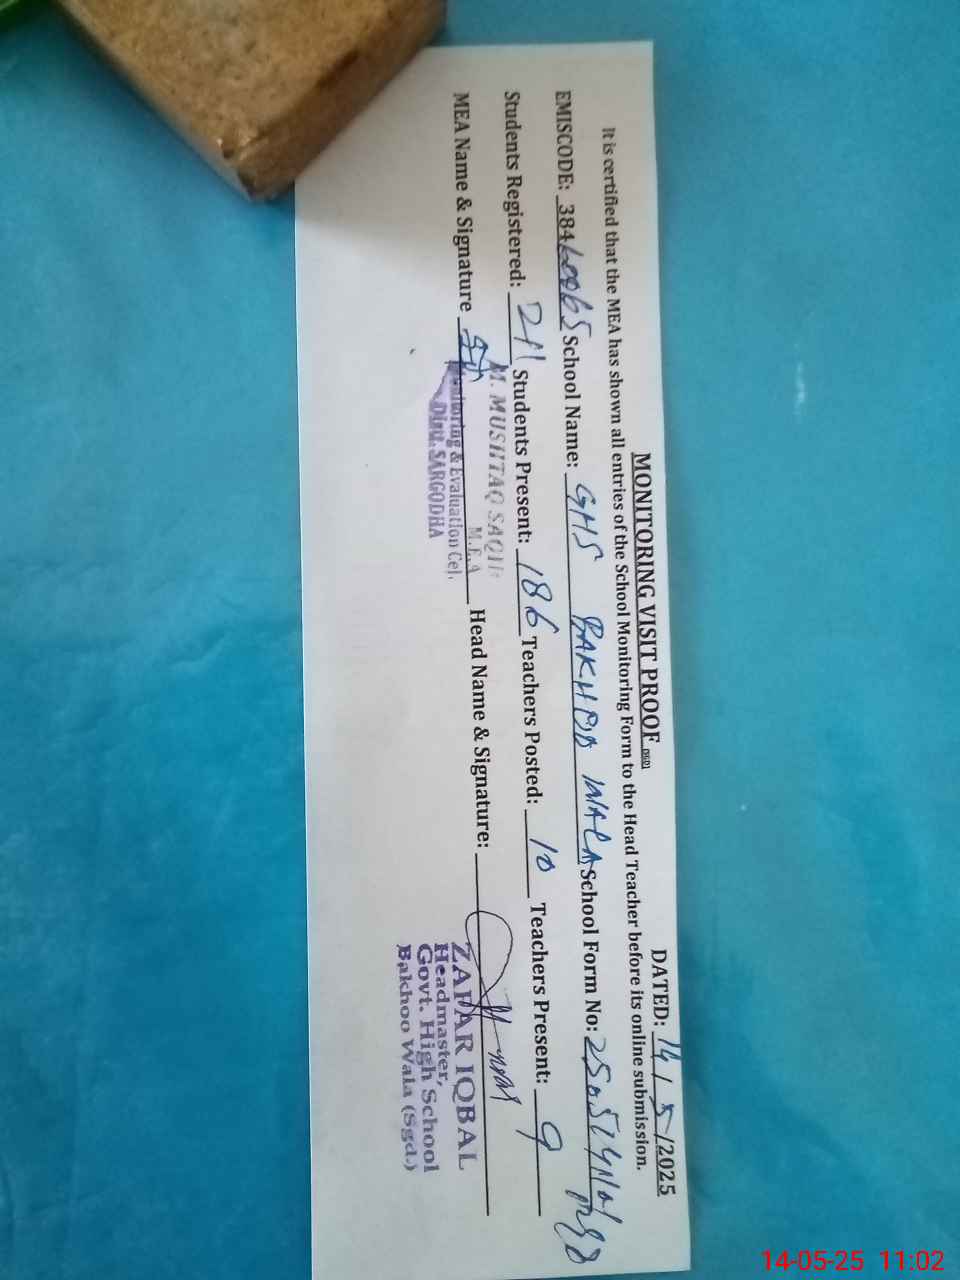 MONITORING VISIT PROOF
DATED: 14 / 5 /2025
It is certified that the MEA has shown all entries of the School Monitoring Form to the Head Teacher before its online submission.
EMISCODE: 38460065 School Name: GHS BAKHOO WALA School Form No:
Students Registered: 211 Students Present: 186 Teachers Posted: 10 Teachers Present: 9
MEA Name & Signature Head Name & Signature:
M. MUSHTAQ SAQIB
M.E.A
Monitoring & Evaluation Cel.
Distt. SARGODHA
ZAFAR IQBAL
Headmaster,
Govt. High School
Bakhoo Wala (Sgd.)
14-05-25 11:02